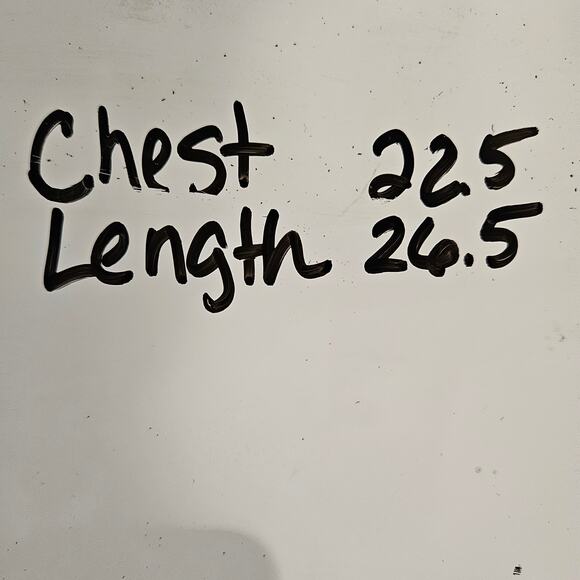 Chest 22.5
Length 26.5